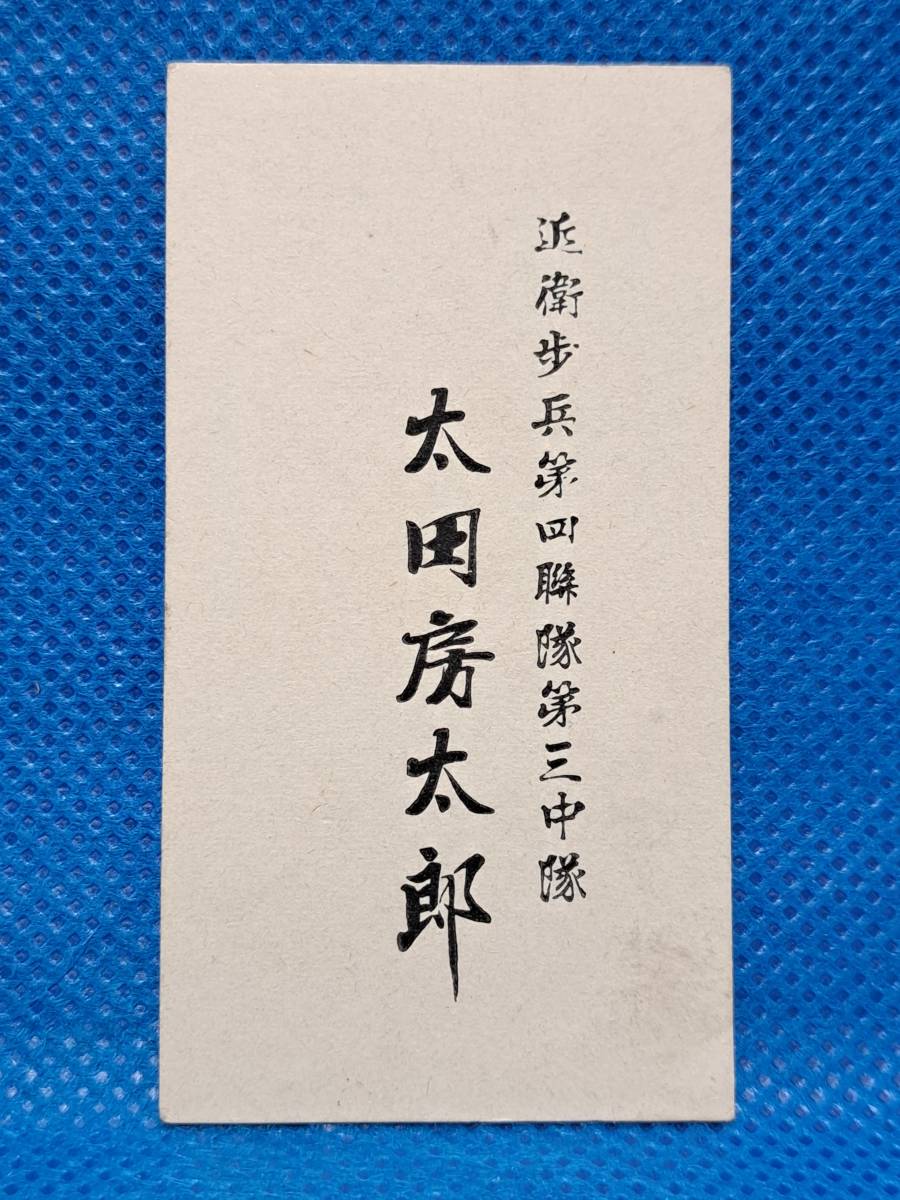 近衛歩兵第四聯隊第三中隊
太田房太郎